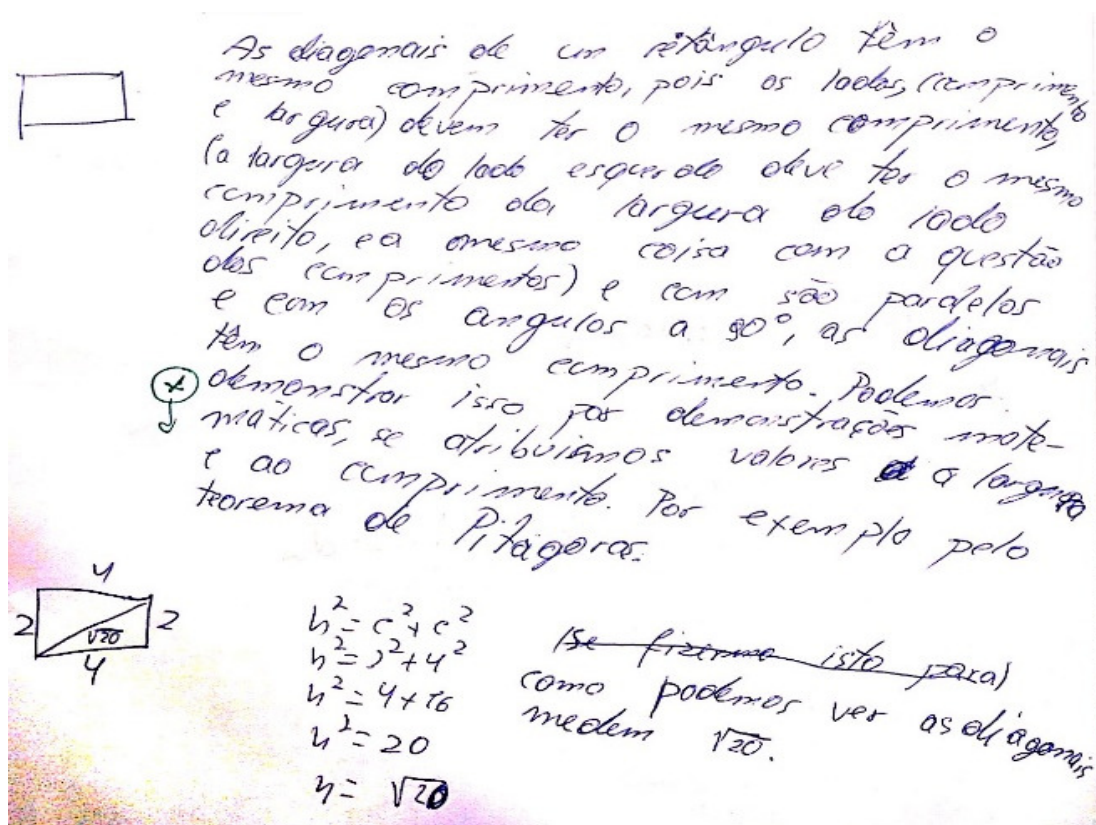 As diagonais de um retângulo têm o
mesmo comprimento, pois os lados, (comprimento
e largura) devem ter o mesmo comprimento,
(a largura do lado esquerdo deve ter o mesmo
comprimento da largura do lado
direito, e a mesmo coisa com a questão
dos comprimentos) e com são paralelos
e com os angulos a 90°, as diagonais
têm o mesmo comprimento. Podemos
demonstrar isso por demonstrações mate-
máticas, se atribuismos valores a largura
e ao comprimento. Por exemplo pelo
teorema de Pitágoras.
4
2 √20 2
4
h² = c² + c²
h² = 2² + 4²
h² = 4 + 16
h² = 20
h = √20
(Se fizermo isto para)
como podemos ver as diagonais
medem √20.